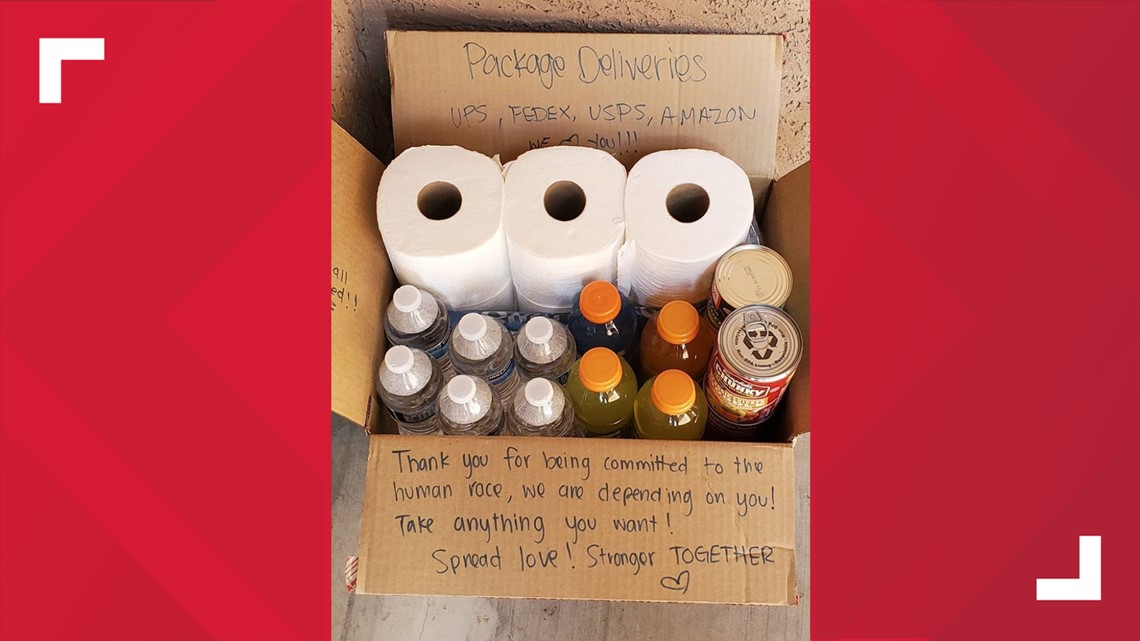 Package Deliveries
UPS, FEDEX, USPS, AMAZON
WE ♡ YOU!!!
all
ed!!
CHUNKY
Thank you for being committed to the
human race, we are depending on you!
Take anything you want!
Spread love! Stronger TOGETHER
♡